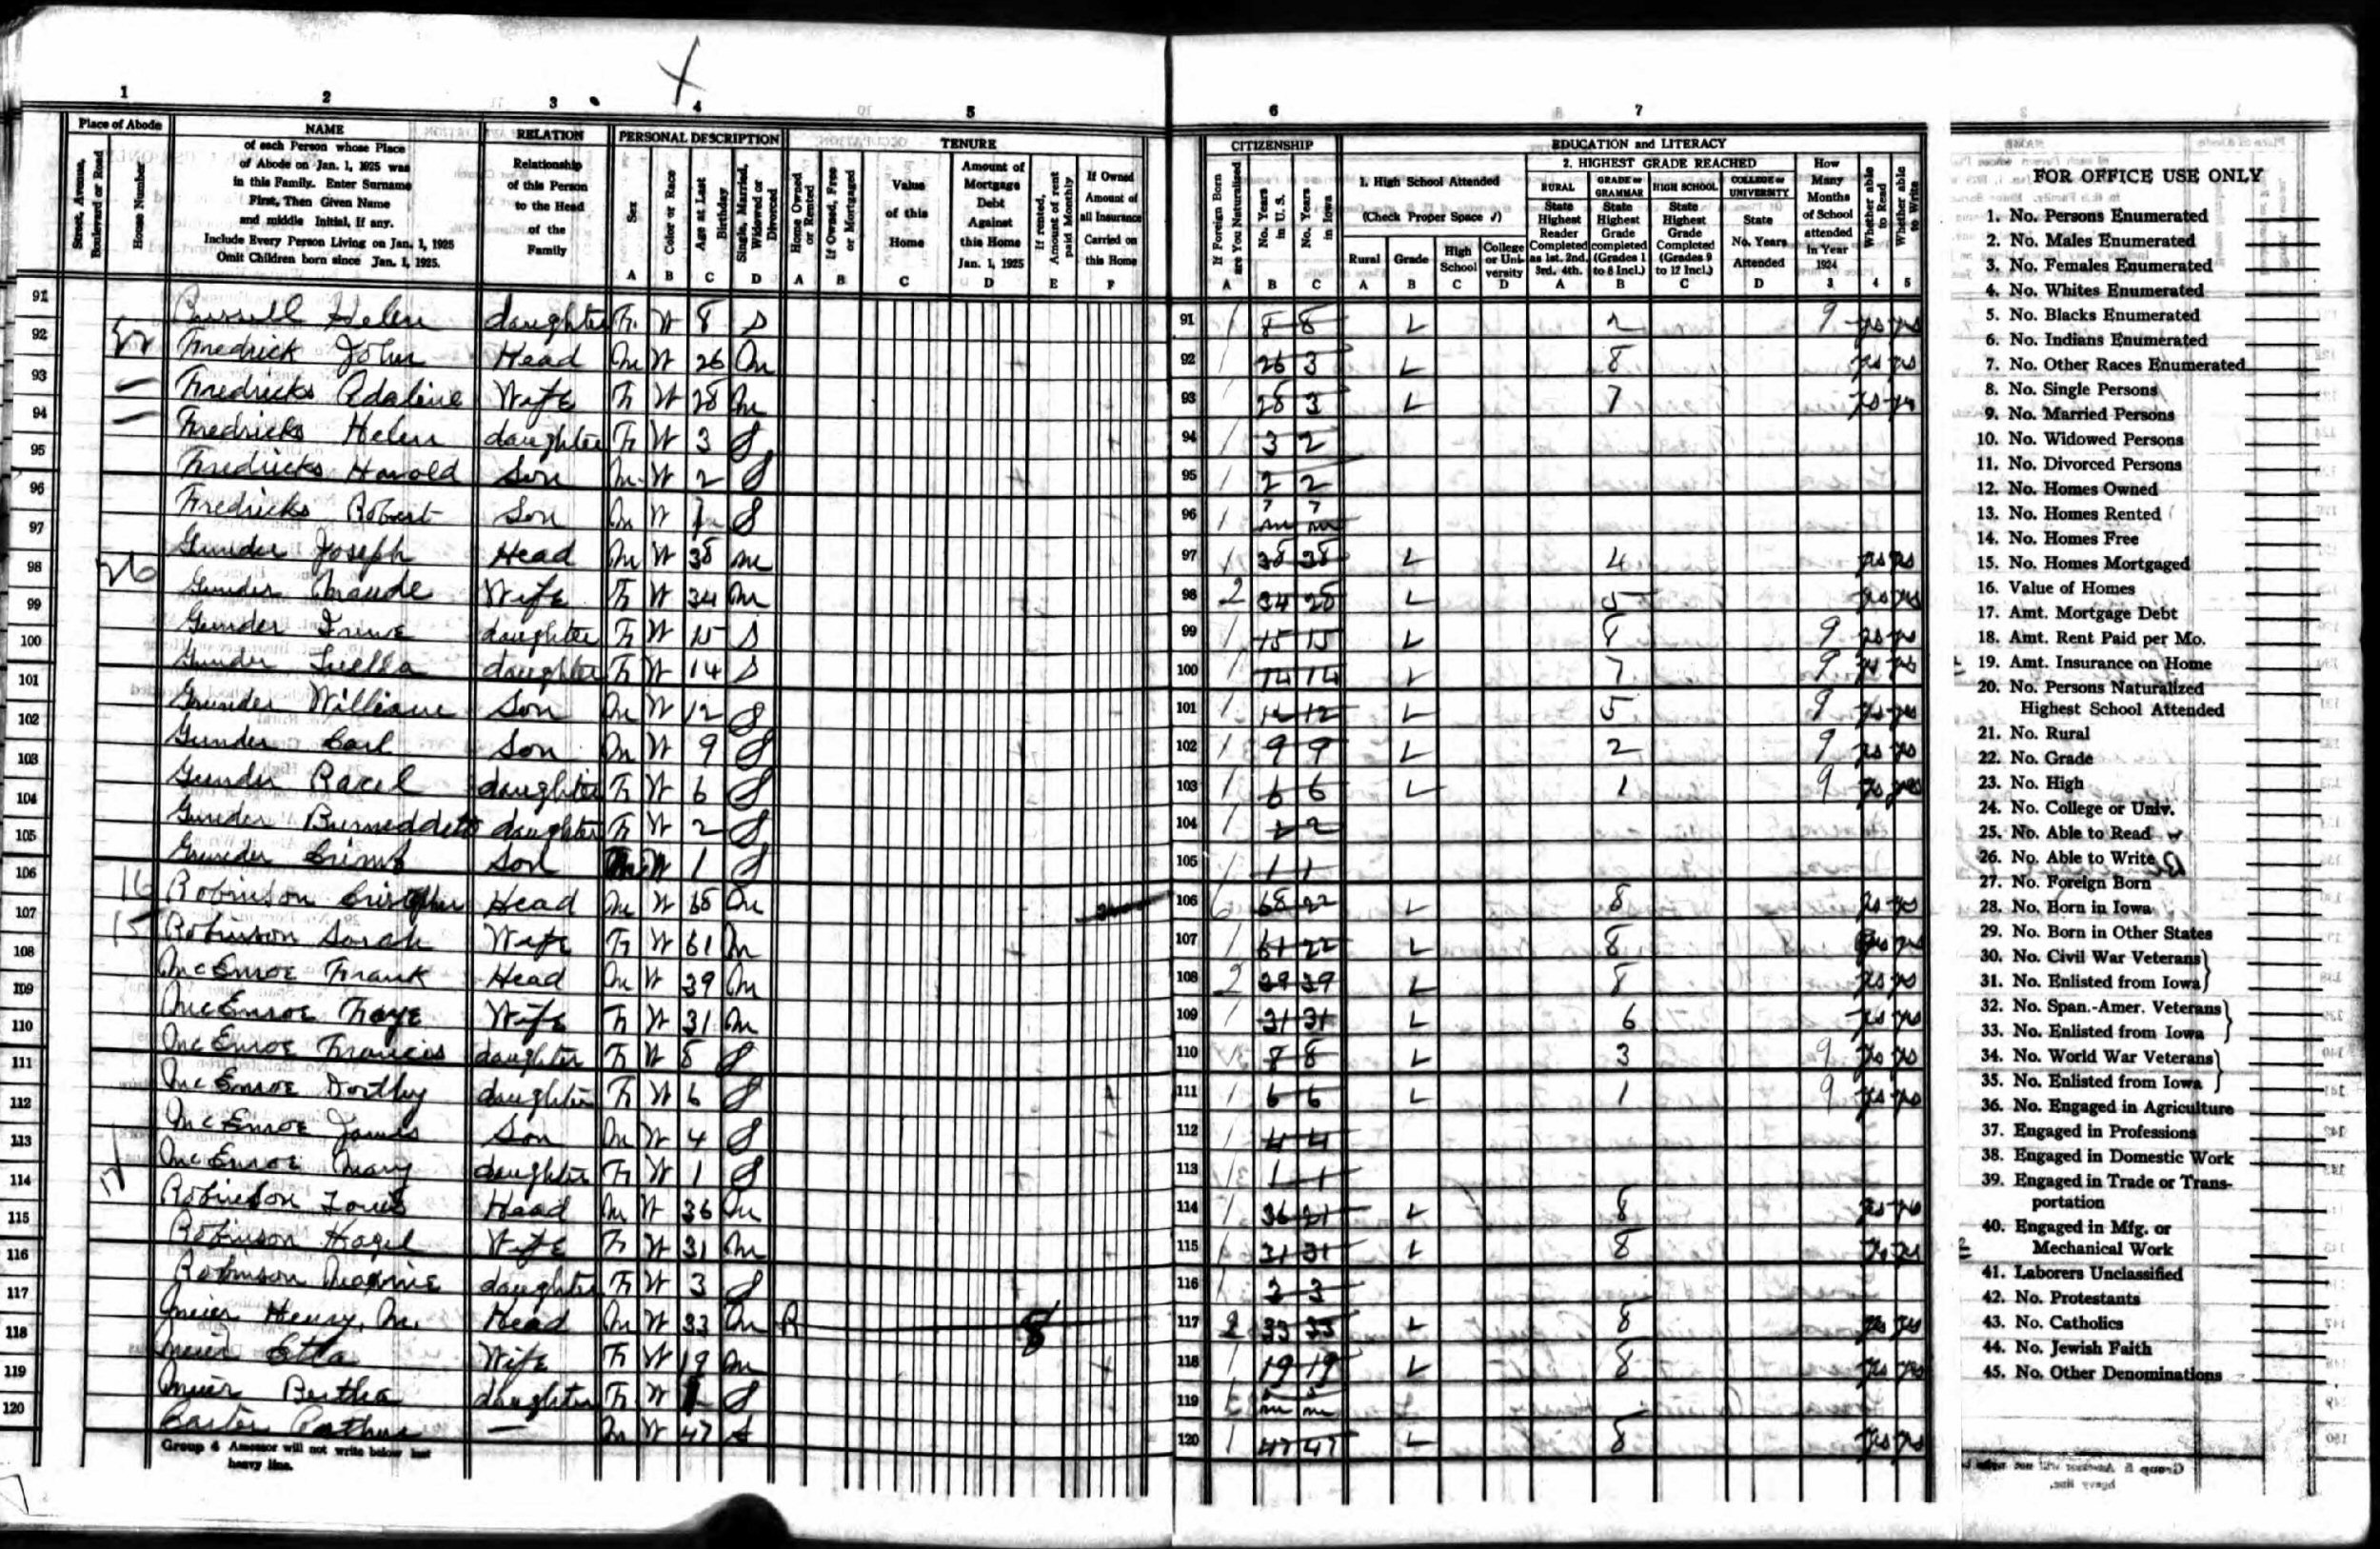 1 2 3 4 5
Place of Abode
Street, Avenue, Boulevard or Road
House Number
NAME
of each Person whose Place
of Abode on Jan. 1, 1925 was
in this Family. Enter Surname
First, Then Given Name
and middle Initial, if any.
Include Every Person Living on Jan. 1, 1925
Omit Children born since Jan. 1, 1925.
RELATION
Relationship
of this Person
to the Head
of the
Family
PERSONAL DESCRIPTION
Sex
A
Color or Race
B
Age at Last Birthday
C
Single, Married, Widowed or Divorced
D
TENURE
Home Owned or Rented
A
If Owned, Free or Mortgaged
B
Value
of this
Home
C
Amount of
Mortgage
Debt
Against
this Home
Jan. 1, 1925
D
If rented, Amount of rent paid Monthly
E
If Owned
Amount of
all Insurance
Carried on
this Home
F
91 Helen daughter F W 8 S
92 Fredrick John Head M W 26 M
93 Fredricks Adaline Wife F W 28 M
94 Fredricks Helen daughter F W 3 S
95 Fredricks Harold Son M W 2 S
96 Fredricks Robert Son M W S
97 Gunder Joseph Head M W 38 M
98 26 Gunder Maude Wife F W 34 M
99 Gunder Irene daughter F W 15 S
100 Gunder Luella daughter F W 14 S
101 Gunder William Son M W 12 S
102 Gunder Carl Son M W 9 S
103 Gunder Racel daughter F W 6 S
104 Gunder Burneddeto daughter F W 2 S
105 Gunder Son M W 1 S
106 16 Robinson Head M W 68 M
107 15 Robinson Sarah Wife F W 61 M
108 McEnroe Frank Head M W 39 M
109 McEnroe Faye Wife F W 31 M
110 McEnroe Francis daughter F W 8 S
111 McEnroe Dorthy daughter F W 6 S
112 McEnroe James Son M W 4 S
113 McEnroe Mary daughter F W 1 S
114 17 Robinson Louis Head M W 36 M
115 Robinson Hazel Wife F W 31 M
116 Robinson Maxine daughter F W 3 S
117 Meier Henry, M. Head M W 33 M R 8
118 Meier Etta Wife F W 19 M
119 Meier Bertha daughter F W S
120 Carter Arthur — M W 47 S
Group 4 Assessor will not write below last
heavy line.
6 7
CITIZENSHIP
If Foreign Born are You Naturalized
A
No. Years in U. S.
B
No. Years in Iowa
C
EDUCATION and LITERACY
1. High School Attended
(Check Proper Space ✓)
Rural
A
Grade
B
High School
C
College or University
D
2. HIGHEST GRADE REACHED
RURAL
State Highest Reader Completed as 1st. 2nd. 3rd. 4th.
A
GRADE or GRAMMAR
State Highest Grade completed (Grades 1 to 8 Incl.)
B
HIGH SCHOOL
State Highest Grade Completed (Grades 9 to 12 Incl.)
C
COLLEGE or UNIVERSITY
State No. Years Attended
D
How Many Months of School attended in Year 1924
3
Whether able to Read
4
Whether able to Write
5
91 1 8 8 ✓ 2 9 yes yes
92 1 26 3 ✓ 8 yes yes
93 1 28 3 ✓ 7 yes yes
94 1 3 2
95 1 2 2
96 1 7 m 7 m
97 1 38 38 ✓ 4 yes yes
98 2 34 28 ✓ 5 yes yes
99 1 15 15 ✓ 8 9 yes yes
100 1 14 14 ✓ 7 9 yes yes
101 1 12 12 ✓ 5 9 yes yes
102 1 9 9 ✓ 2 9 yes yes
103 1 6 6 ✓ 1 9 yes yes
104 1 2 2
105 1 1 1
106 6 68 22 ✓ 8 yes yes
107 1 61 22 ✓ 8 yes yes
108 2 39 39 ✓ 8 yes yes
109 1 31 31 ✓ 6 yes yes
110 1 8 8 ✓ 3 9 yes yes
111 1 6 6 ✓ 1 9 yes yes
112 1 4 4
113 1 1 1
114 1 36 21 ✓ 8 yes yes
115 1 31 31 ✓ 8 yes yes
116 1 3 3
117 2 33 33 ✓ 8 yes yes
118 1 19 19 ✓ 8 yes yes
119 m m
120 1 47 47 ✓ 8 yes yes
FOR OFFICE USE ONLY
1. No. Persons Enumerated
2. No. Males Enumerated
3. No. Females Enumerated
4. No. Whites Enumerated
5. No. Blacks Enumerated
6. No. Indians Enumerated
7. No. Other Races Enumerated
8. No. Single Persons
9. No. Married Persons
10. No. Widowed Persons
11. No. Divorced Persons
12. No. Homes Owned
13. No. Homes Rented
14. No. Homes Free
15. No. Homes Mortgaged
16. Value of Homes
17. Amt. Mortgage Debt
18. Amt. Rent Paid per Mo.
19. Amt. Insurance on Home
20. No. Persons Naturalized
Highest School Attended
21. No. Rural
22. No. Grade
23. No. High
24. No. College or Univ.
25. No. Able to Read
26. No. Able to Write
27. No. Foreign Born
28. No. Born in Iowa
29. No. Born in Other States
30. No. Civil War Veterans
31. No. Enlisted from Iowa
32. No. Span.-Amer. Veterans
33. No. Enlisted from Iowa
34. No. World War Veterans
35. No. Enlisted from Iowa
36. No. Engaged in Agriculture
37. Engaged in Professions
38. Engaged in Domestic Work
39. Engaged in Trade or Trans-
portation
40. Engaged in Mfg. or
Mechanical Work
41. Laborers Unclassified
42. No. Protestants
43. No. Catholics
44. No. Jewish Faith
45. No. Other Denominations